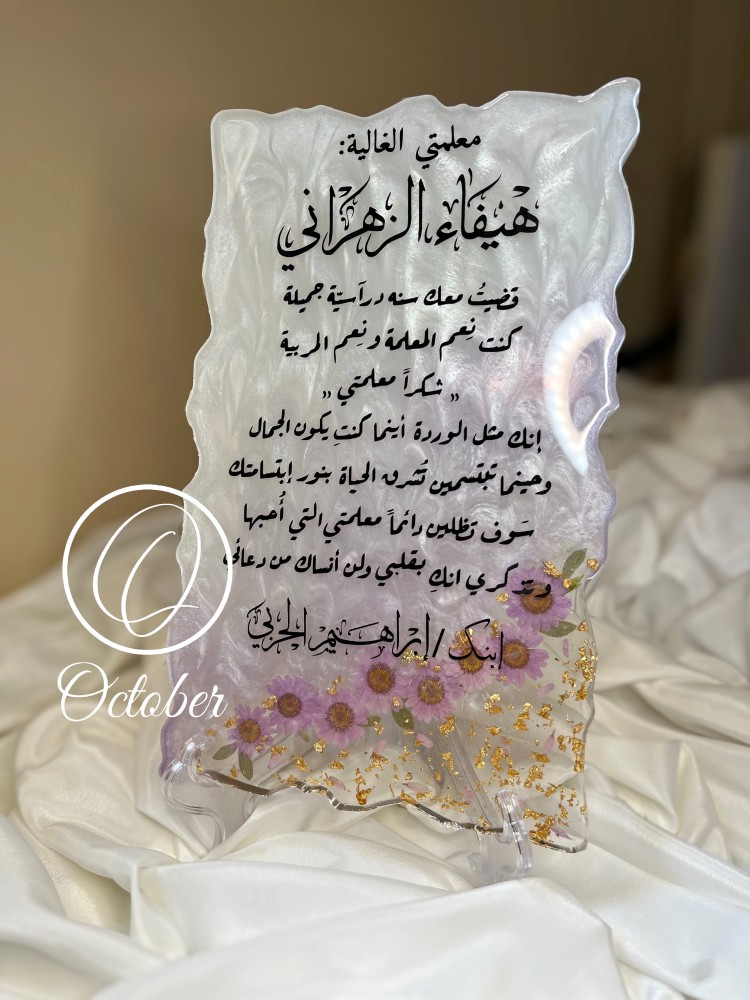 معلمتي الغالية:
هيفاء الزهراني
قضيتُ معك سنه دراسيّة جميلة
كنت نِعم المعلمة ونِعم المربية
„ شكراً معلمتي „
إنك مثل الوردة أينما كنتِ يكون الجمال
وحينما تبتسمين تُشرق الحياة بنور إبتسامتك
سَوف تظلين دائماً معلمتي التي أُحبها
وتذكري انكِ بقلبي ولن أنساك من دعائي
إبنك / إبراهيم الحربي
O
October